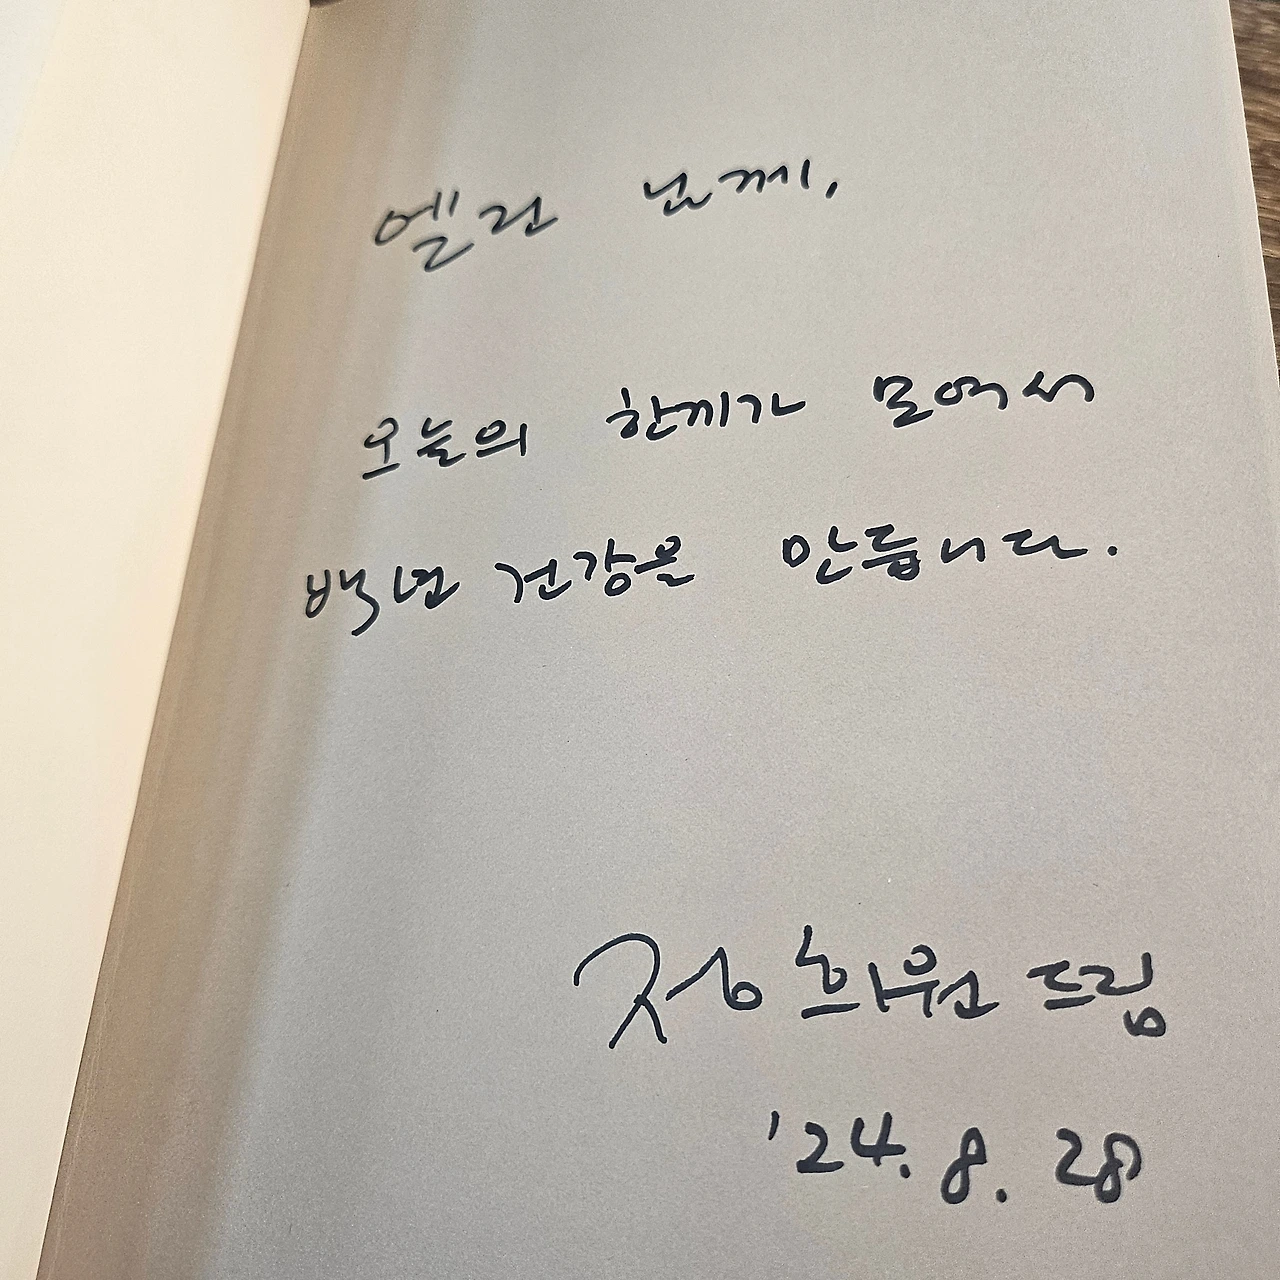 엘린 님께,
오늘의 한끼가 모여서
백년 건강을 만듭니다.
정희원 드림
'24. 8. 28